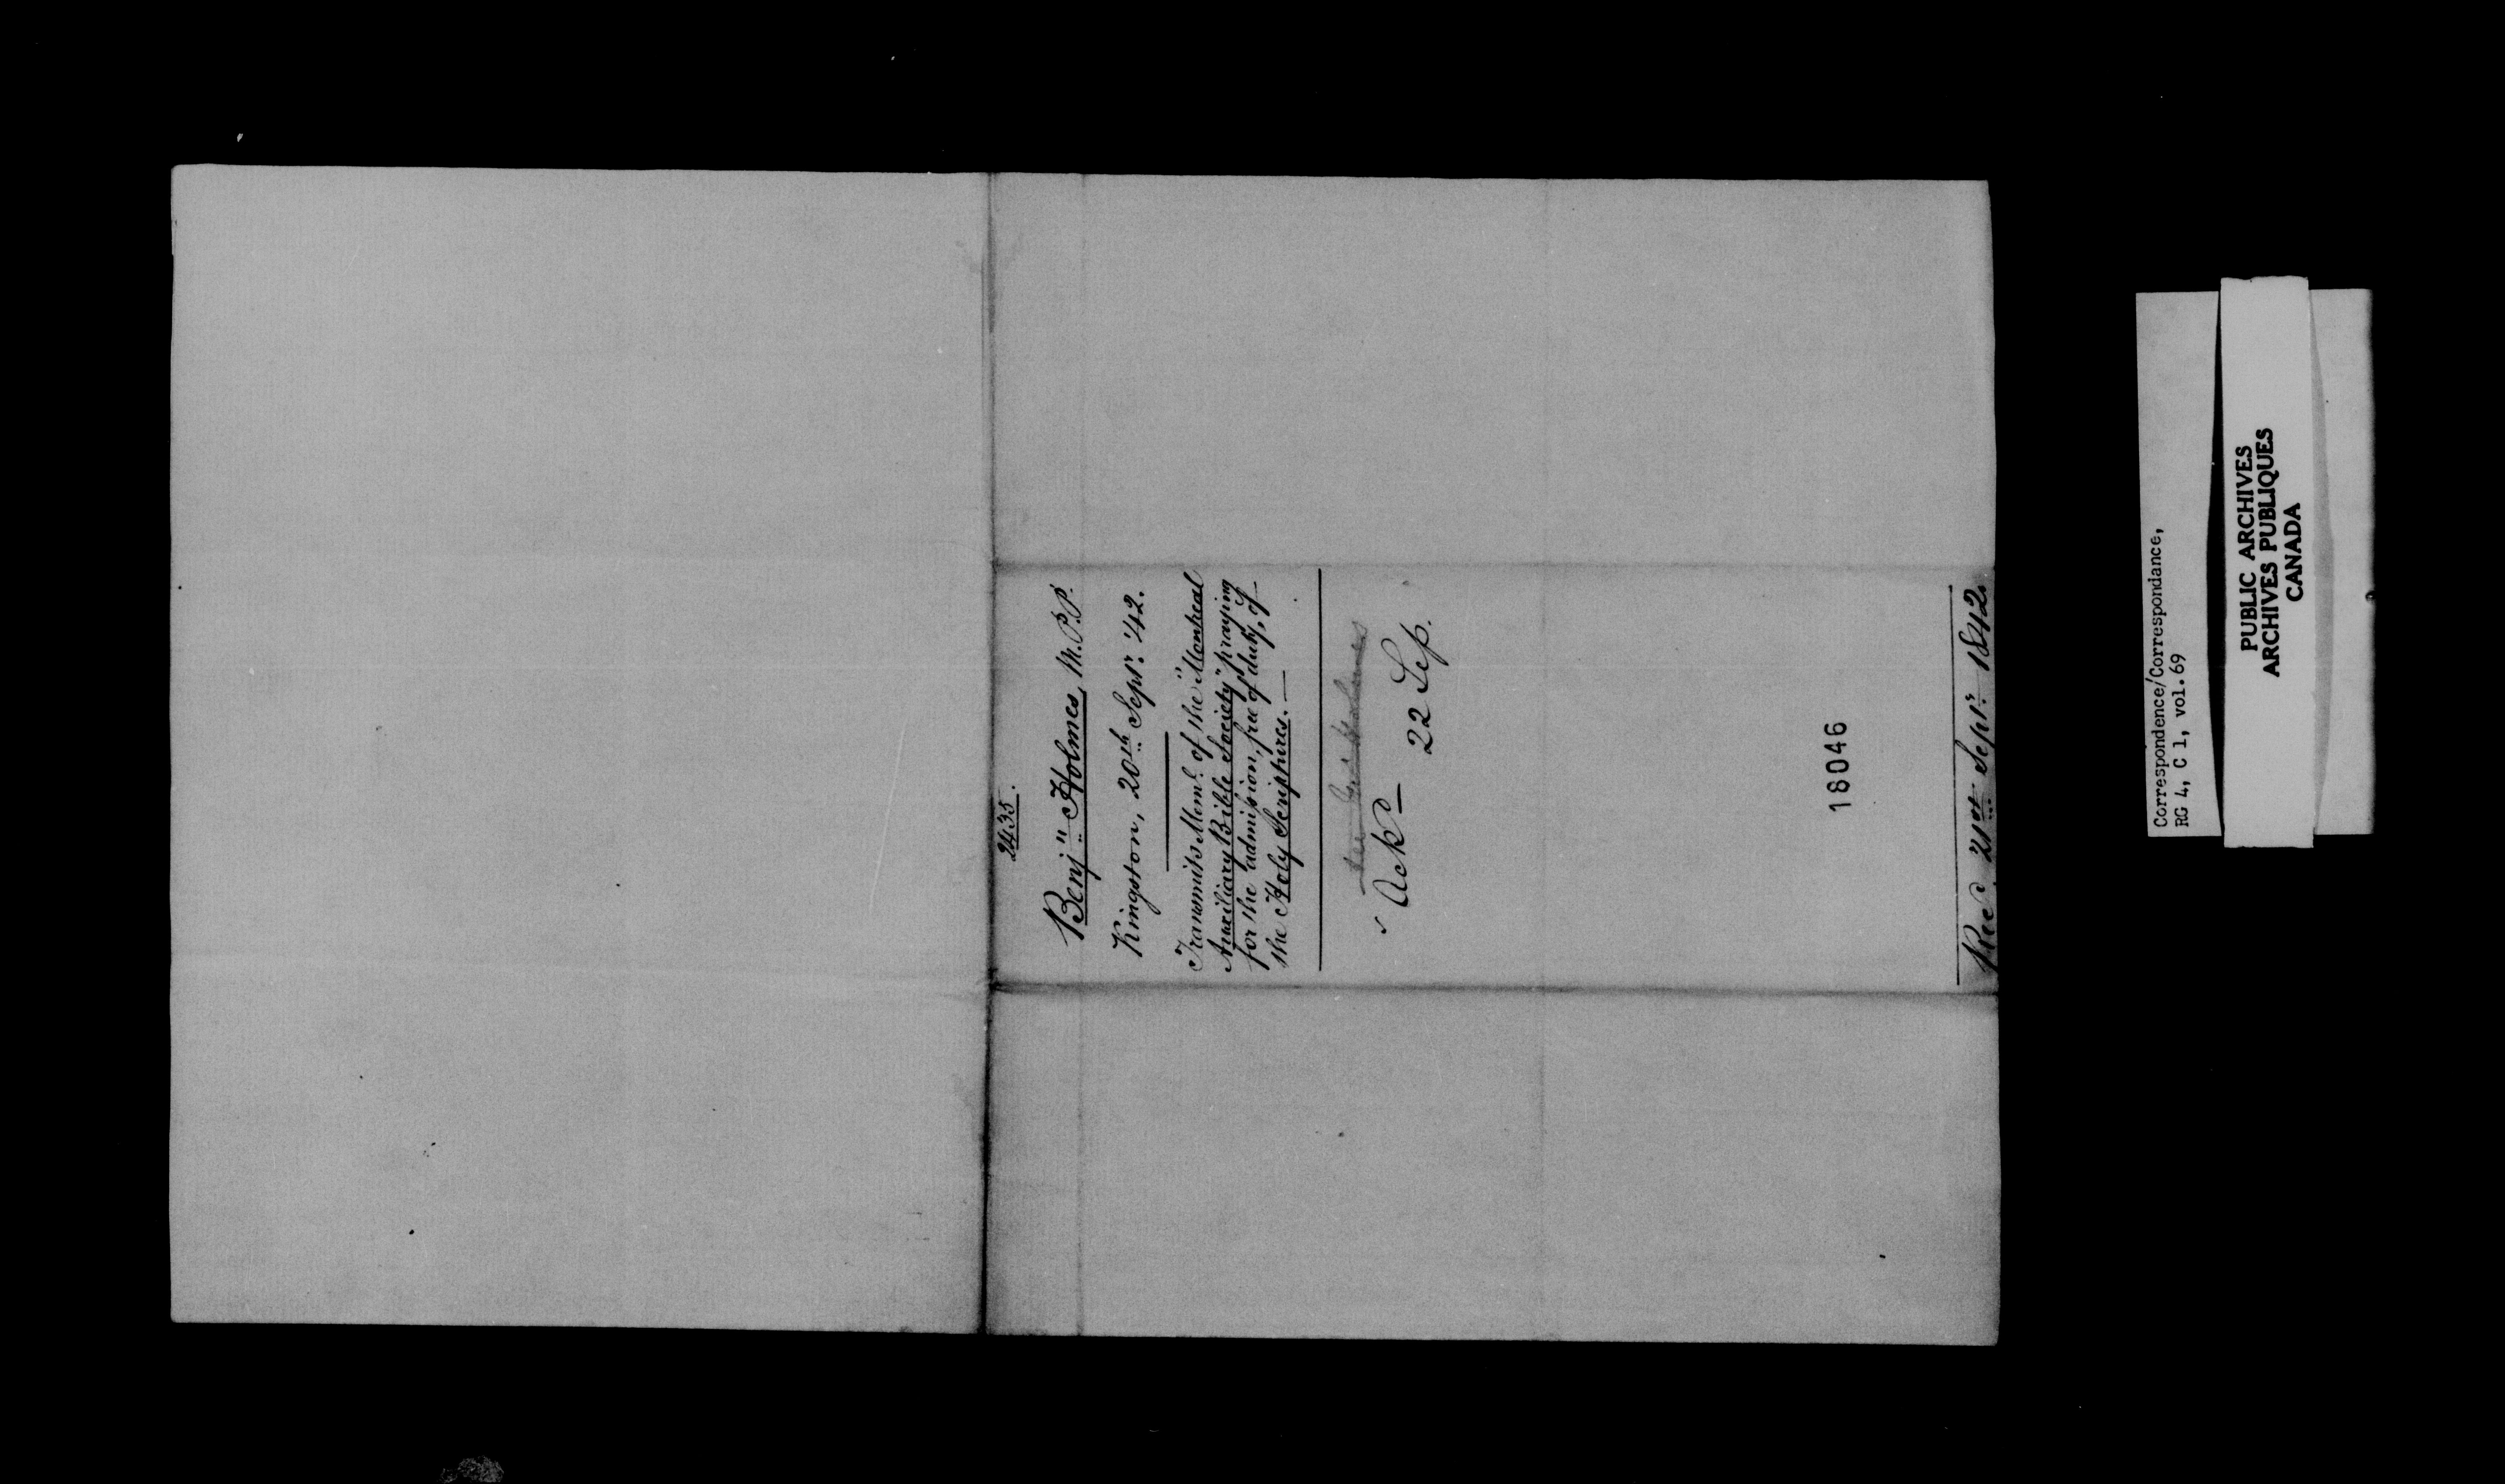 2435.
Benjn. Holmes, M.P.P.
Kingston, 20th Septr. /42.
Transmits Meml. of the "Montreal
Auxiliary Bible Society" praying
for the admission, free of duty, of
the Holy Scriptures. —
Ackd
22 Sep.
18046
Recd. 21st Septr. 1842.
Correspondence/Correspondance,
RG 4, C 1, vol. 69
PUBLIC ARCHIVES
ARCHIVES PUBLIQUES
CANADA